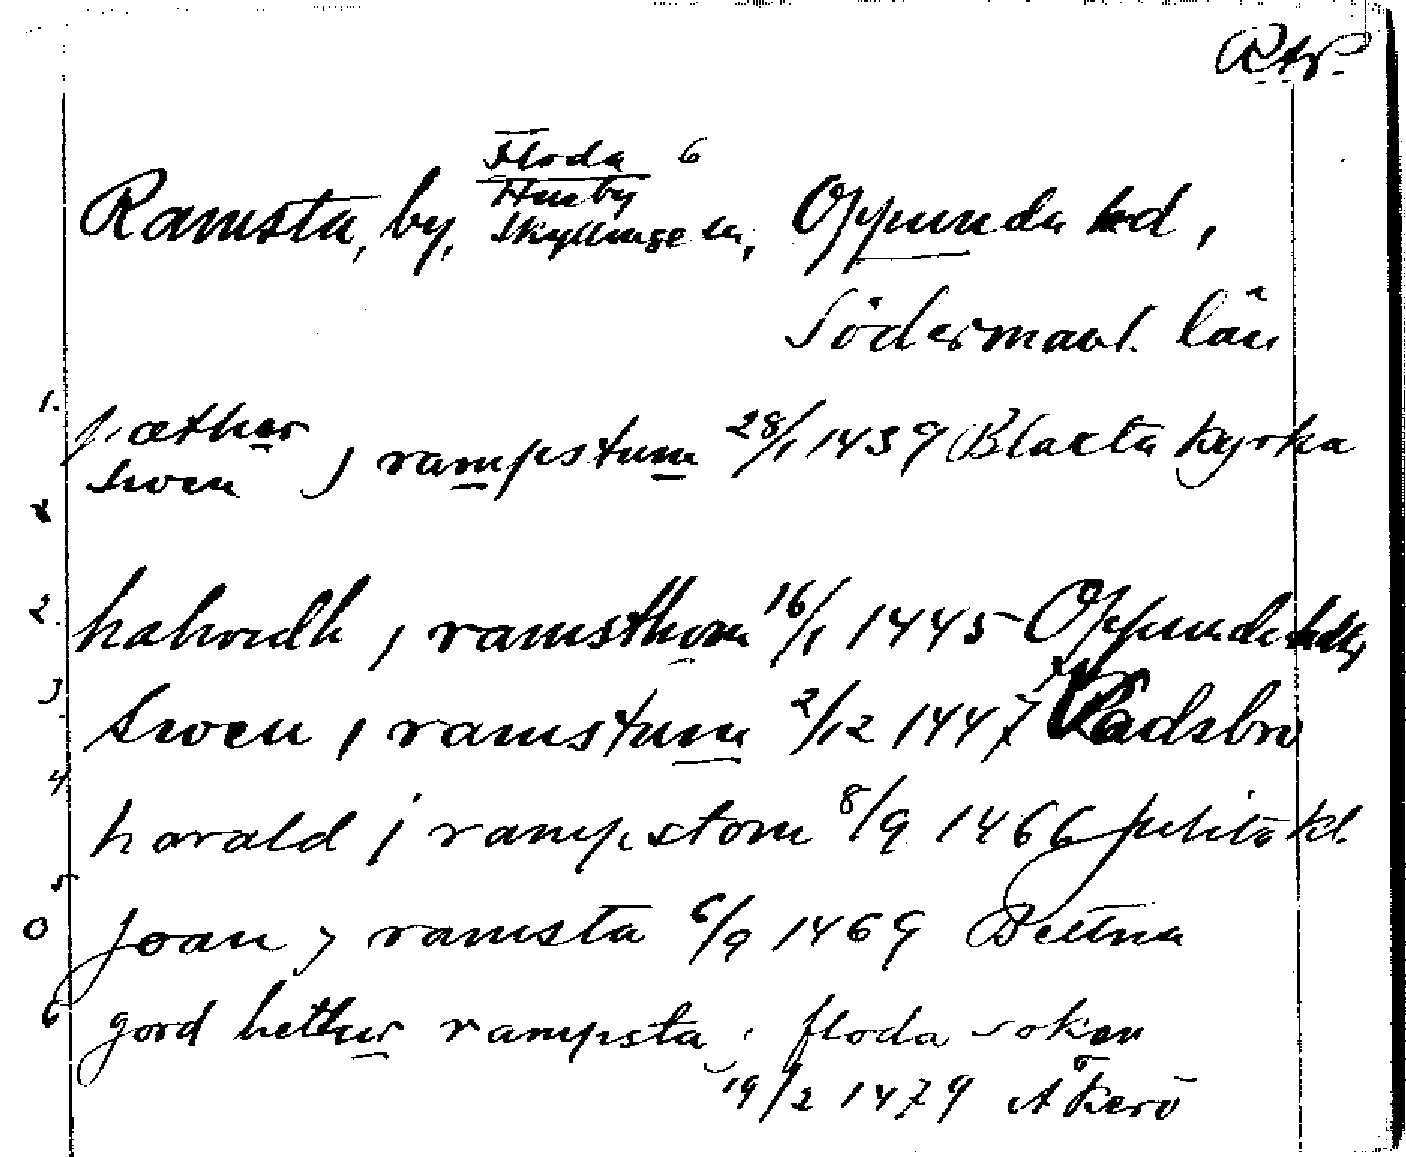 Rtp.
Floda 6
Ramsta, by, Husby Oppunda hd,
Skyllinge sn,
Södermanl. län
1. pæther
swen j rampstum 28/1 1439 Blacta kyrka
2. halwidh j ramsthom 16/1 1445 Oppunda
3. Swen j ramstum 2/12 1447 Rådsbro
4 harald j rampstom 8/9 1466 Julita kl.
5
0 Joan j ramsta 6/9 1469 Bettna
6 gord hether rampsta i floda soken
19/2 1479 Åkerö